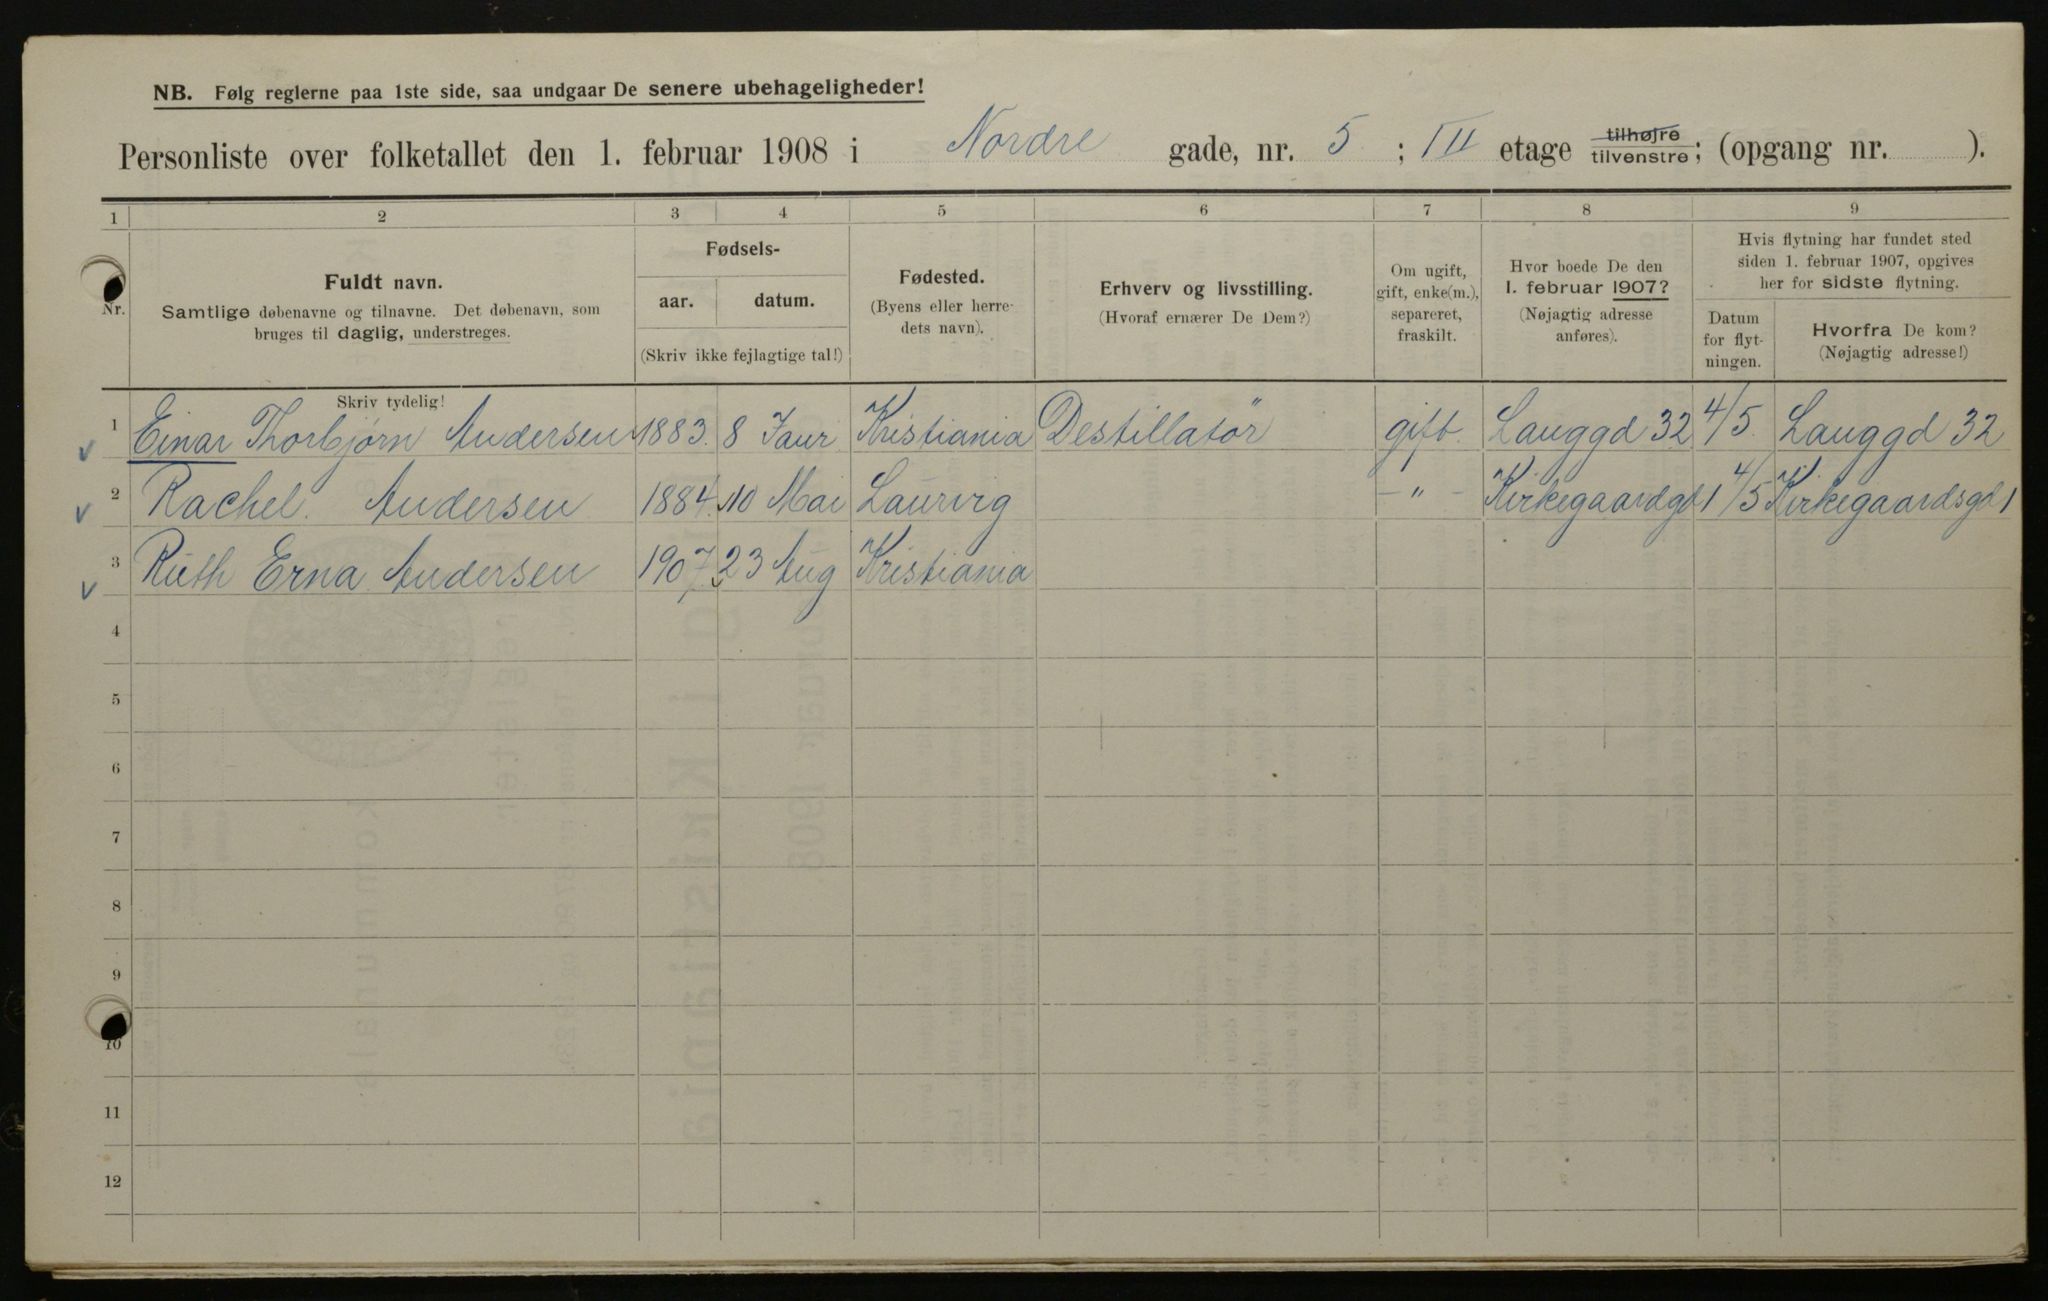 NB. Følg reglerne paa 1ste side, saa undgaar De senere ubehageligheder!
Personliste over folketallet den 1. februar 1908 i Nordre gade, nr. 5 ; III etage tilhøjre tilvenstre; (opgang nr. ).
1 2 3 4 5 6 7 8 9
Nr.
Fuldt navn.
Samtlige døbenavne og tilnavne. Det døbenavn, som
bruges til daglig, understreges.
Fødsels-
aar. datum.
(Skriv ikke fejlagtige tal!)
Fødested.
(Byens eller herre-
dets navn).
Erhverv og livsstilling.
(Hvoraf ernærer De Dem?)
Om ugift,
gift, enke(m.),
separeret,
fraskilt.
Hvor boede De den
1. februar 1907?
(Nøjagtig adresse
anføres).
Hvis flytning har fundet sted
siden 1. februar 1907, opgives
her for sidste flytning.
Datum
for flyt-
ningen.
Hvorfra De kom?
(Nøjagtig adresse!)
Skriv tydelig!
1 Einar Thorbjørn Andersen 1883. 8 Janr Kristiania Destillatör gift. Langgd 32 4/5. Langgd 32
2 Rachel. Andersen 1884. 10 Mai Laurvig -"- Kirkegaardgd 1 4/5 Kirkegaardsgd 1
3 Ruth Erna Andersen 1907. 23 Aug Kristiania
4
5
6
7
8
9
10
11
12